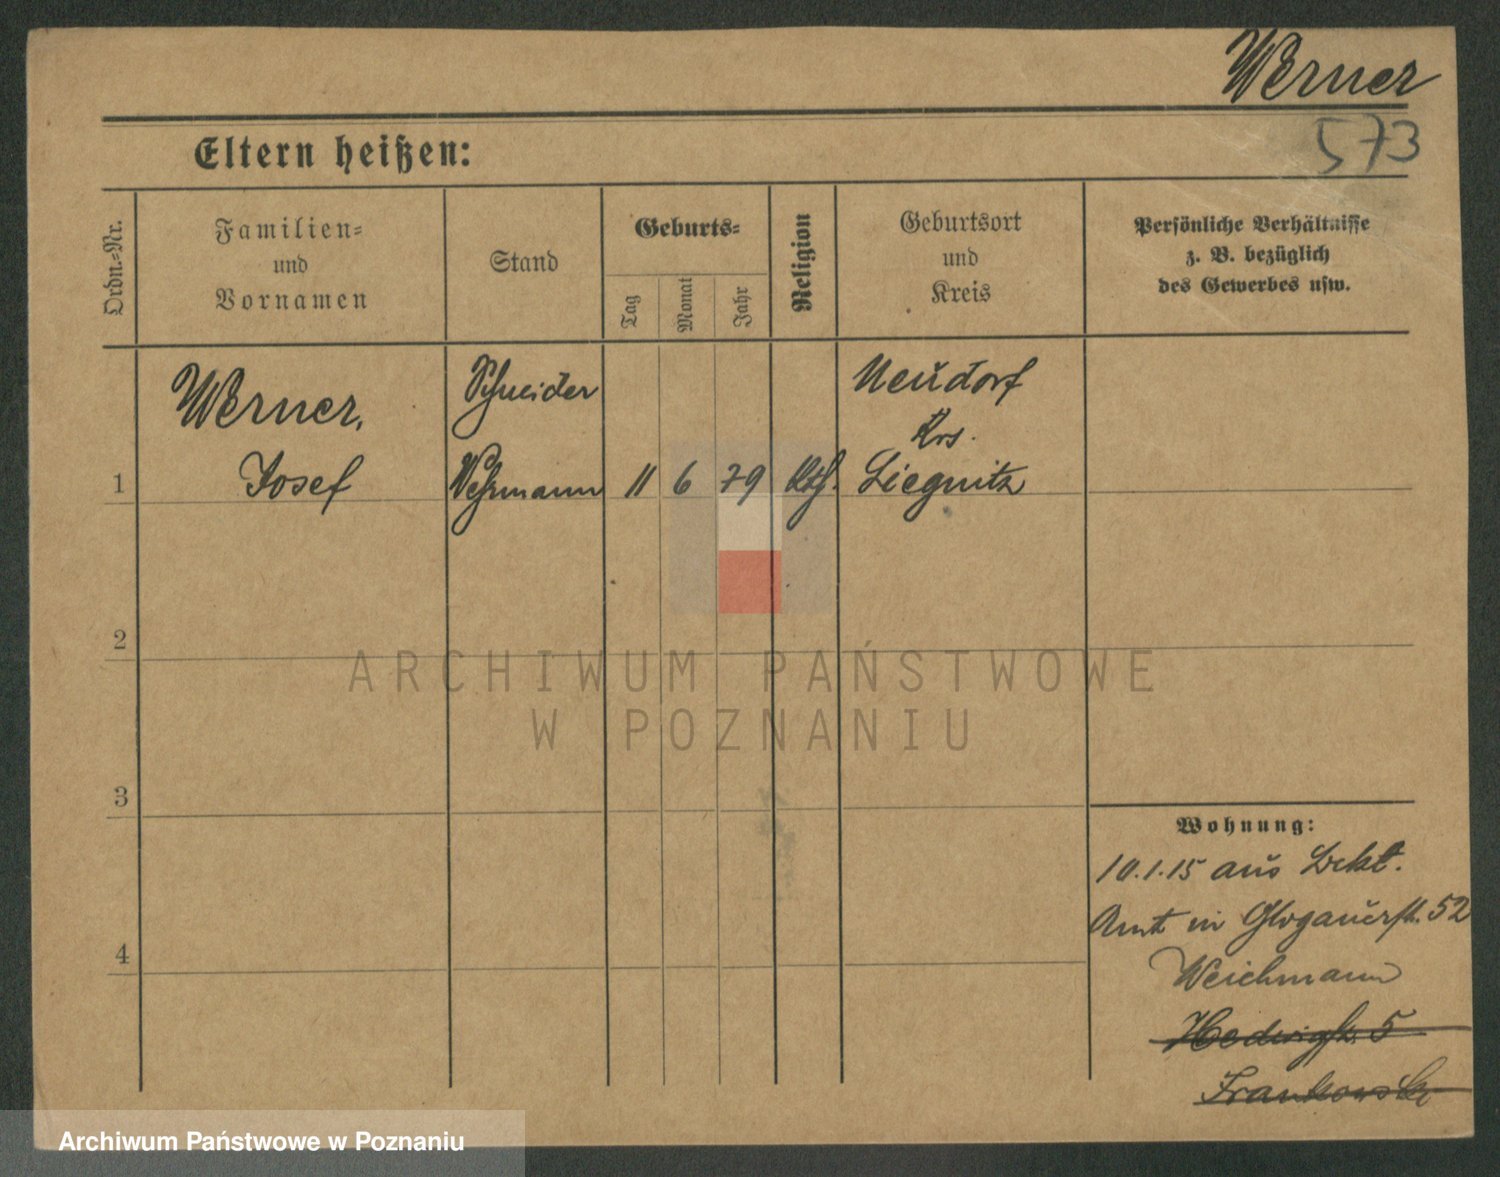 Werner
573
Eltern heißen:
Ordn.-Nr.
Familien-
und
Vornamen
Stand
Geburts-
Tag
Monat
Jahr
Religion
Geburtsort
und
Kreis
Persönliche Verhältnisse
z. B. bezüglich
des Gewerbes usw.
1
Werner,
Josef
Schneider
Wehrmann
11
6
79
kth.
Neudorf
Krs.
Liegnitz
2
3
4
Wohnung:
10.1.15 aus Bekl.
Amt in Glogauerstr. 52
Weichmann
Hedwigstr. 5
Frankowski
ARCHIWUM PAŃSTWOWE
W POZNANIU
Archiwum Państwowe w Poznaniu